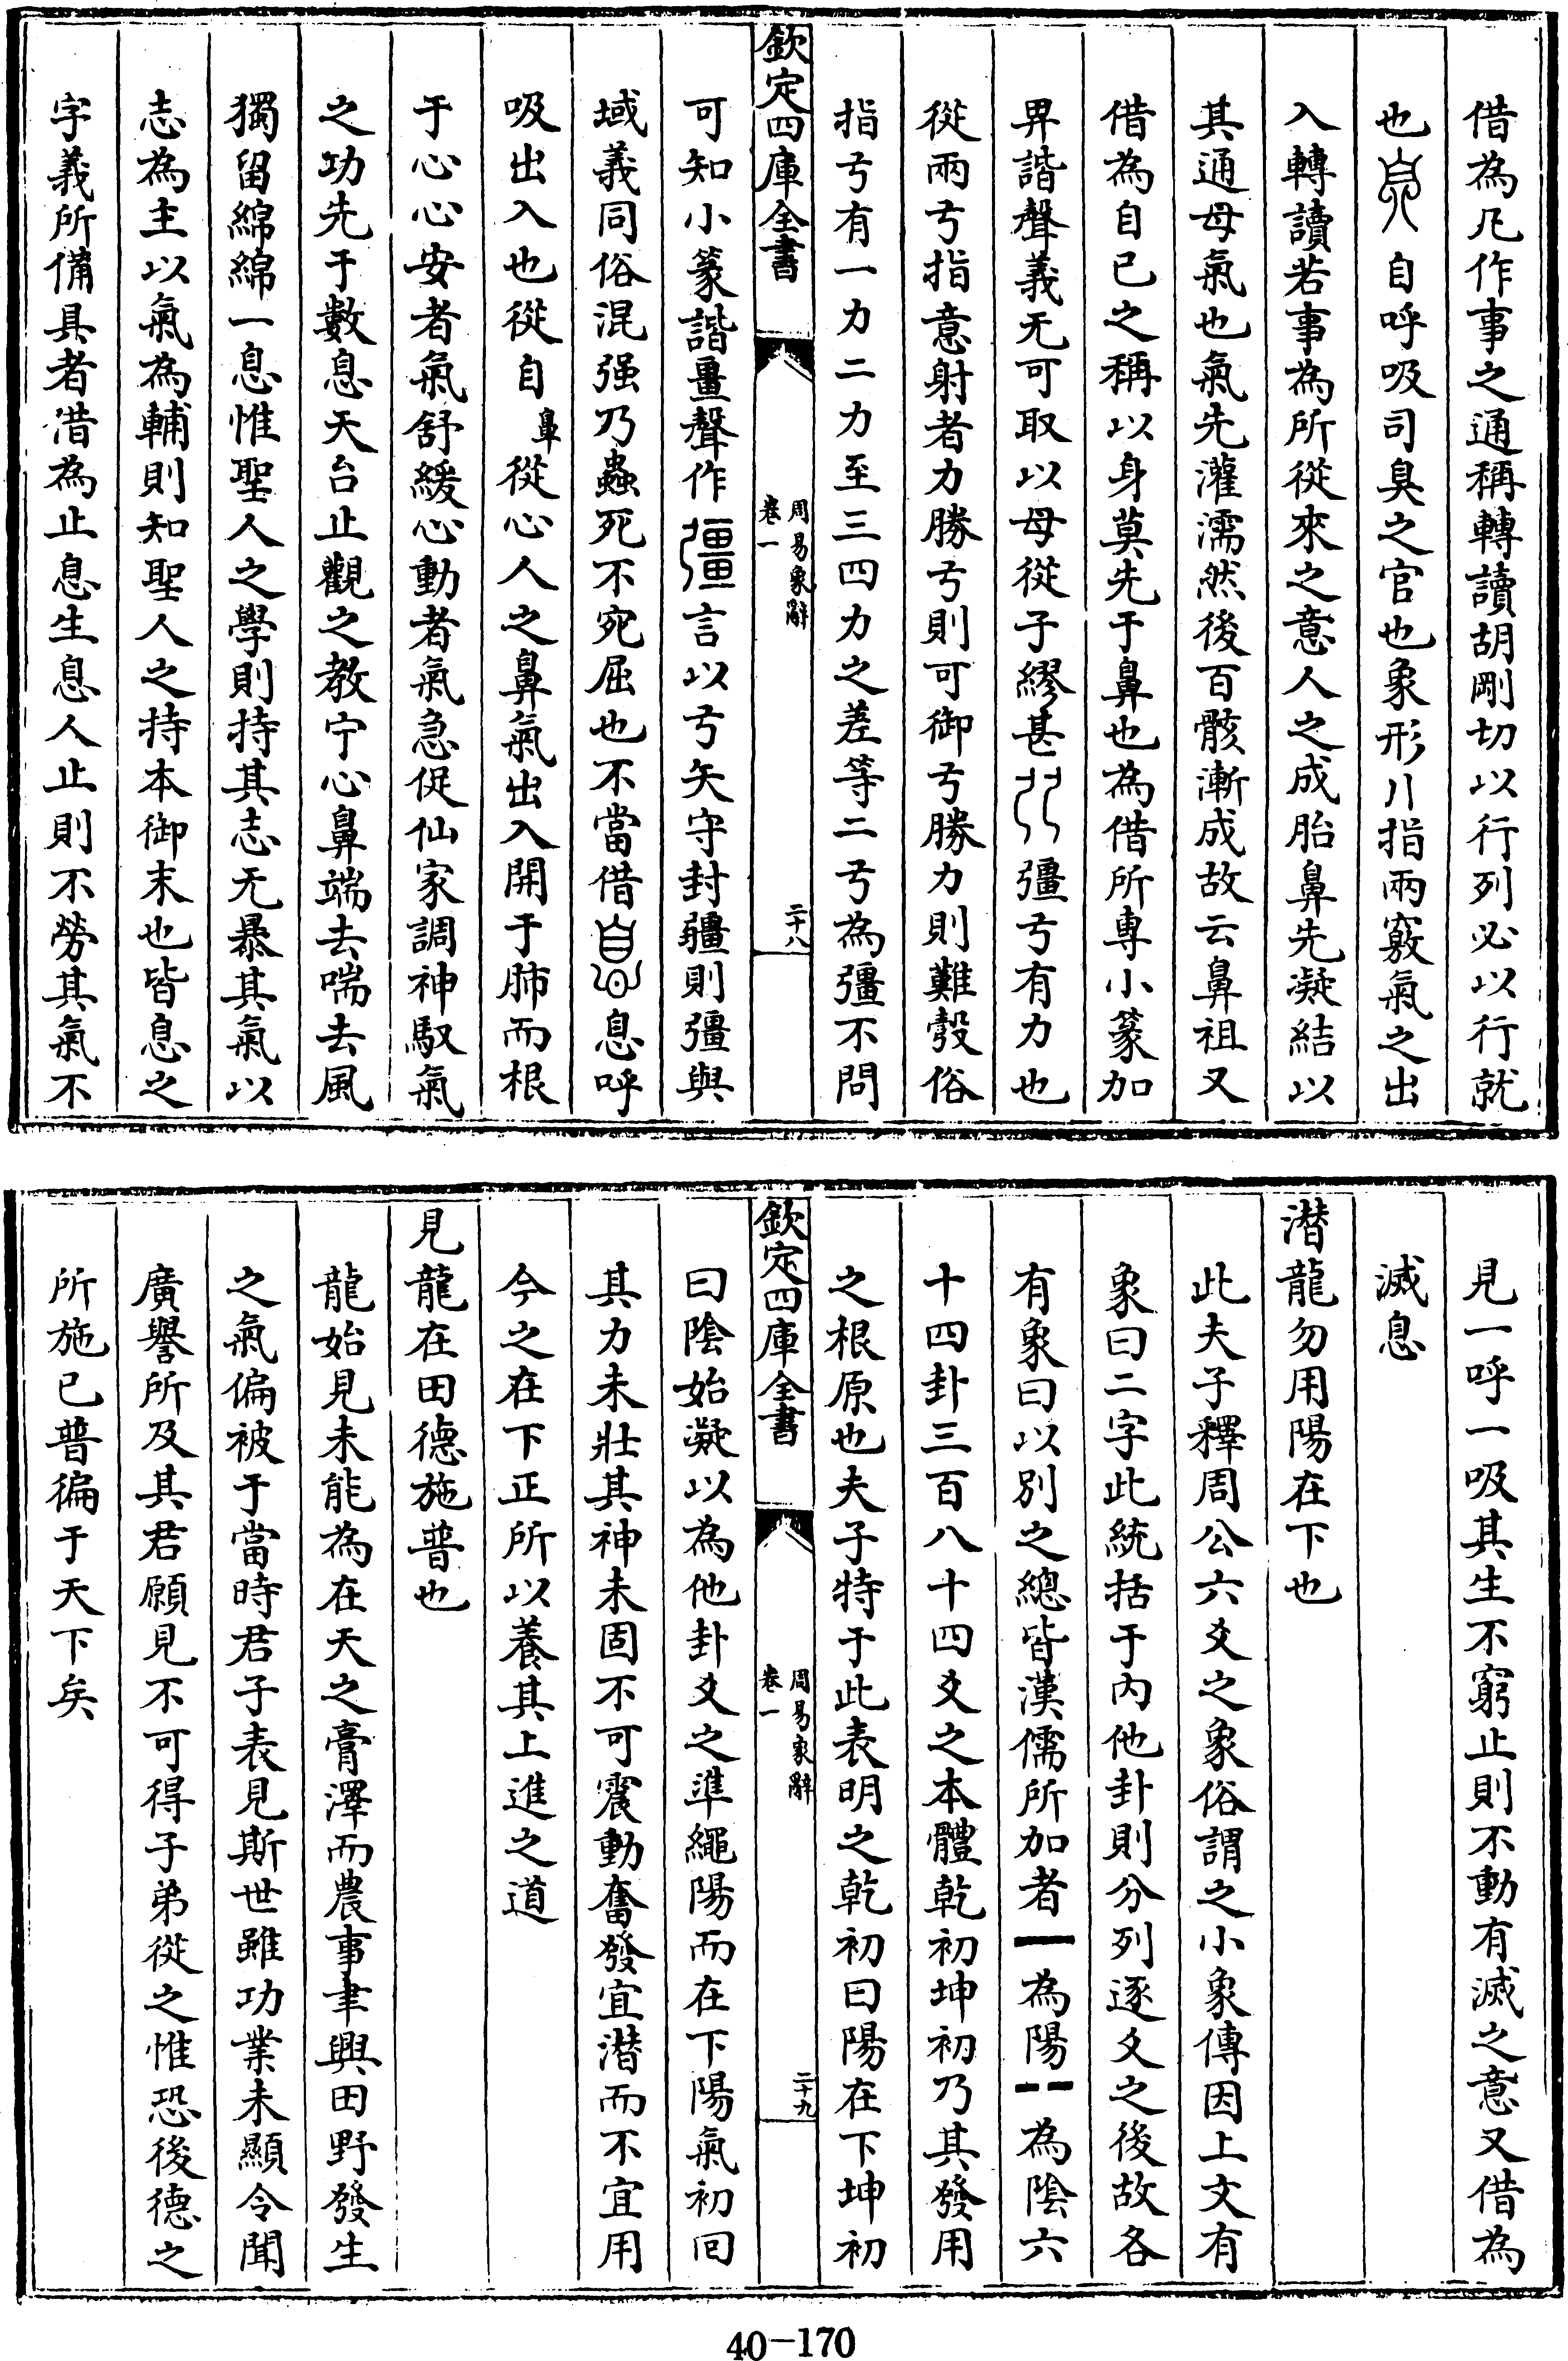 借為凡作事之通稱轉讀胡剛切以行列必以行就
也自呼吸司臭之官也象形八指兩竅氣之出
入轉讀若事為所從來之意人之成胎鼻先凝結以
其通母氣也氣先灌濡然後百骸漸成故云鼻祖又
借為自已之稱以身莫先于鼻也為借所專小篆加
畀諧聲義无可取以母從子繆甚彊丂有力也
從兩丂指意射者力勝丂則可御丂勝力則難彀俗
指丂有一力二力至三四力之差等二丂為彊不問
欽定四庫全書
周易象辭
卷一
二十八
可知小篆諧畺聲作言以丂矢守封疆則彊與
域義同俗混强乃蟲死不宛屈也不當借息呼
吸出入也從自鼻從心人之鼻氣出入開于肺而根
于心心安者氣舒緩心動者氣急促仙家調神馭氣
之功先于數息天台止觀之教宁心鼻端去喘去風
獨留綿綿一息惟聖人之學則持其志无暴其氣以
志為主以氣為輔則知聖人之持本御末也皆息之
字義所備具者借為止息生息人止則不勞其氣不
見一呼一吸其生不窮止則不動有滅之意又借為
滅息
潛龍勿用陽在下也
此夫子釋周公六爻之象俗謂之小象傳因上文有
象曰二字此統括于內他卦則分列逐爻之後故各
有象曰以別之總皆漢儒所加者⚊為陽⚋為陰六
十四卦三百八十四爻之本體乾初坤初乃其發用
之根原也夫子特于此表明之乾初曰陽在下坤初
欽定四庫全書
周易象辭
卷一
二十九
曰陰始凝以為他卦爻之準繩陽而在下陽氣初回
其力未壯其神未固不可震動奮發宜潛而不宜用
今之在下正所以養其上進之道
見龍在田德施普也
龍始見未能為在天之膏澤而農事聿興田野發生
之氣偏被于當時君子表見斯世雖功業未顯令聞
廣譽所及其君願見不可得子弟從之惟恐後德之
所施已普徧于天下矣
40-170